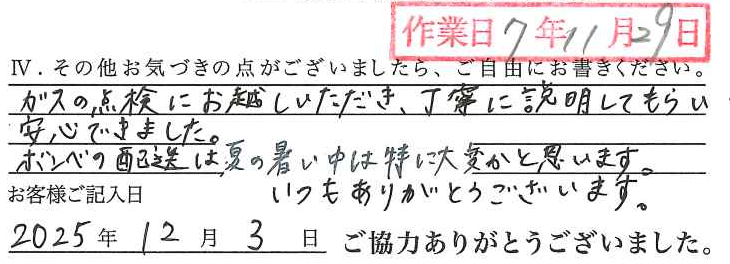 作業日 7年11月29日
Ⅳ．その他お気づきの点がございましたら、ご自由にお書きください。
ガスの点検にお越しいただき、丁寧に説明してもらい
安心できました。
ボンベの配送は夏の暑い中は特に大変かと思います。
いつもありがとうございます。
お客様ご記入日
2025年 12月 3日 ご協力ありがとうございました。